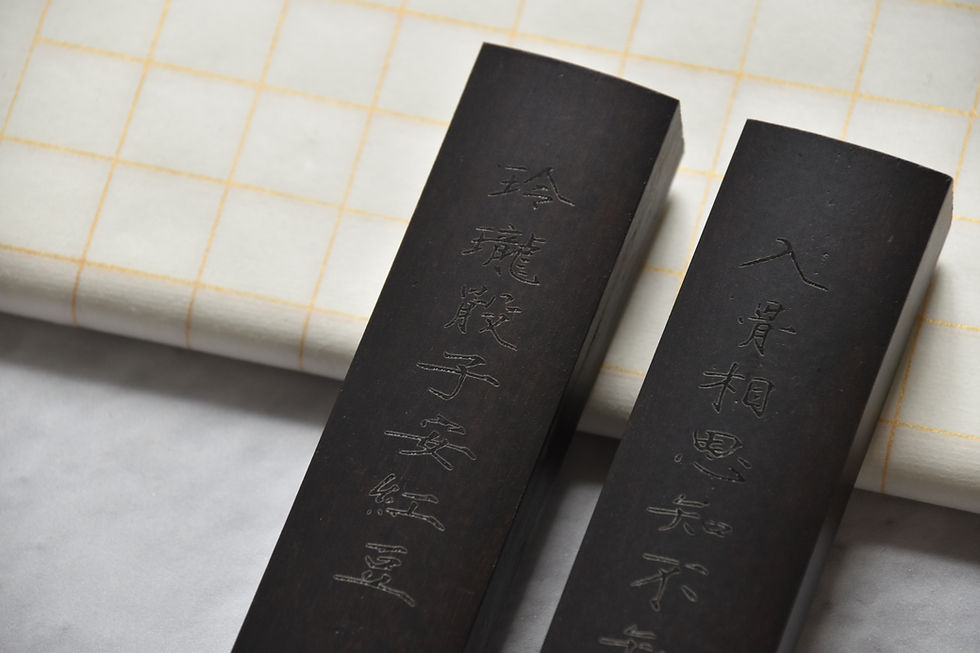 玲瓏骰子安紅豆
入骨相思知不